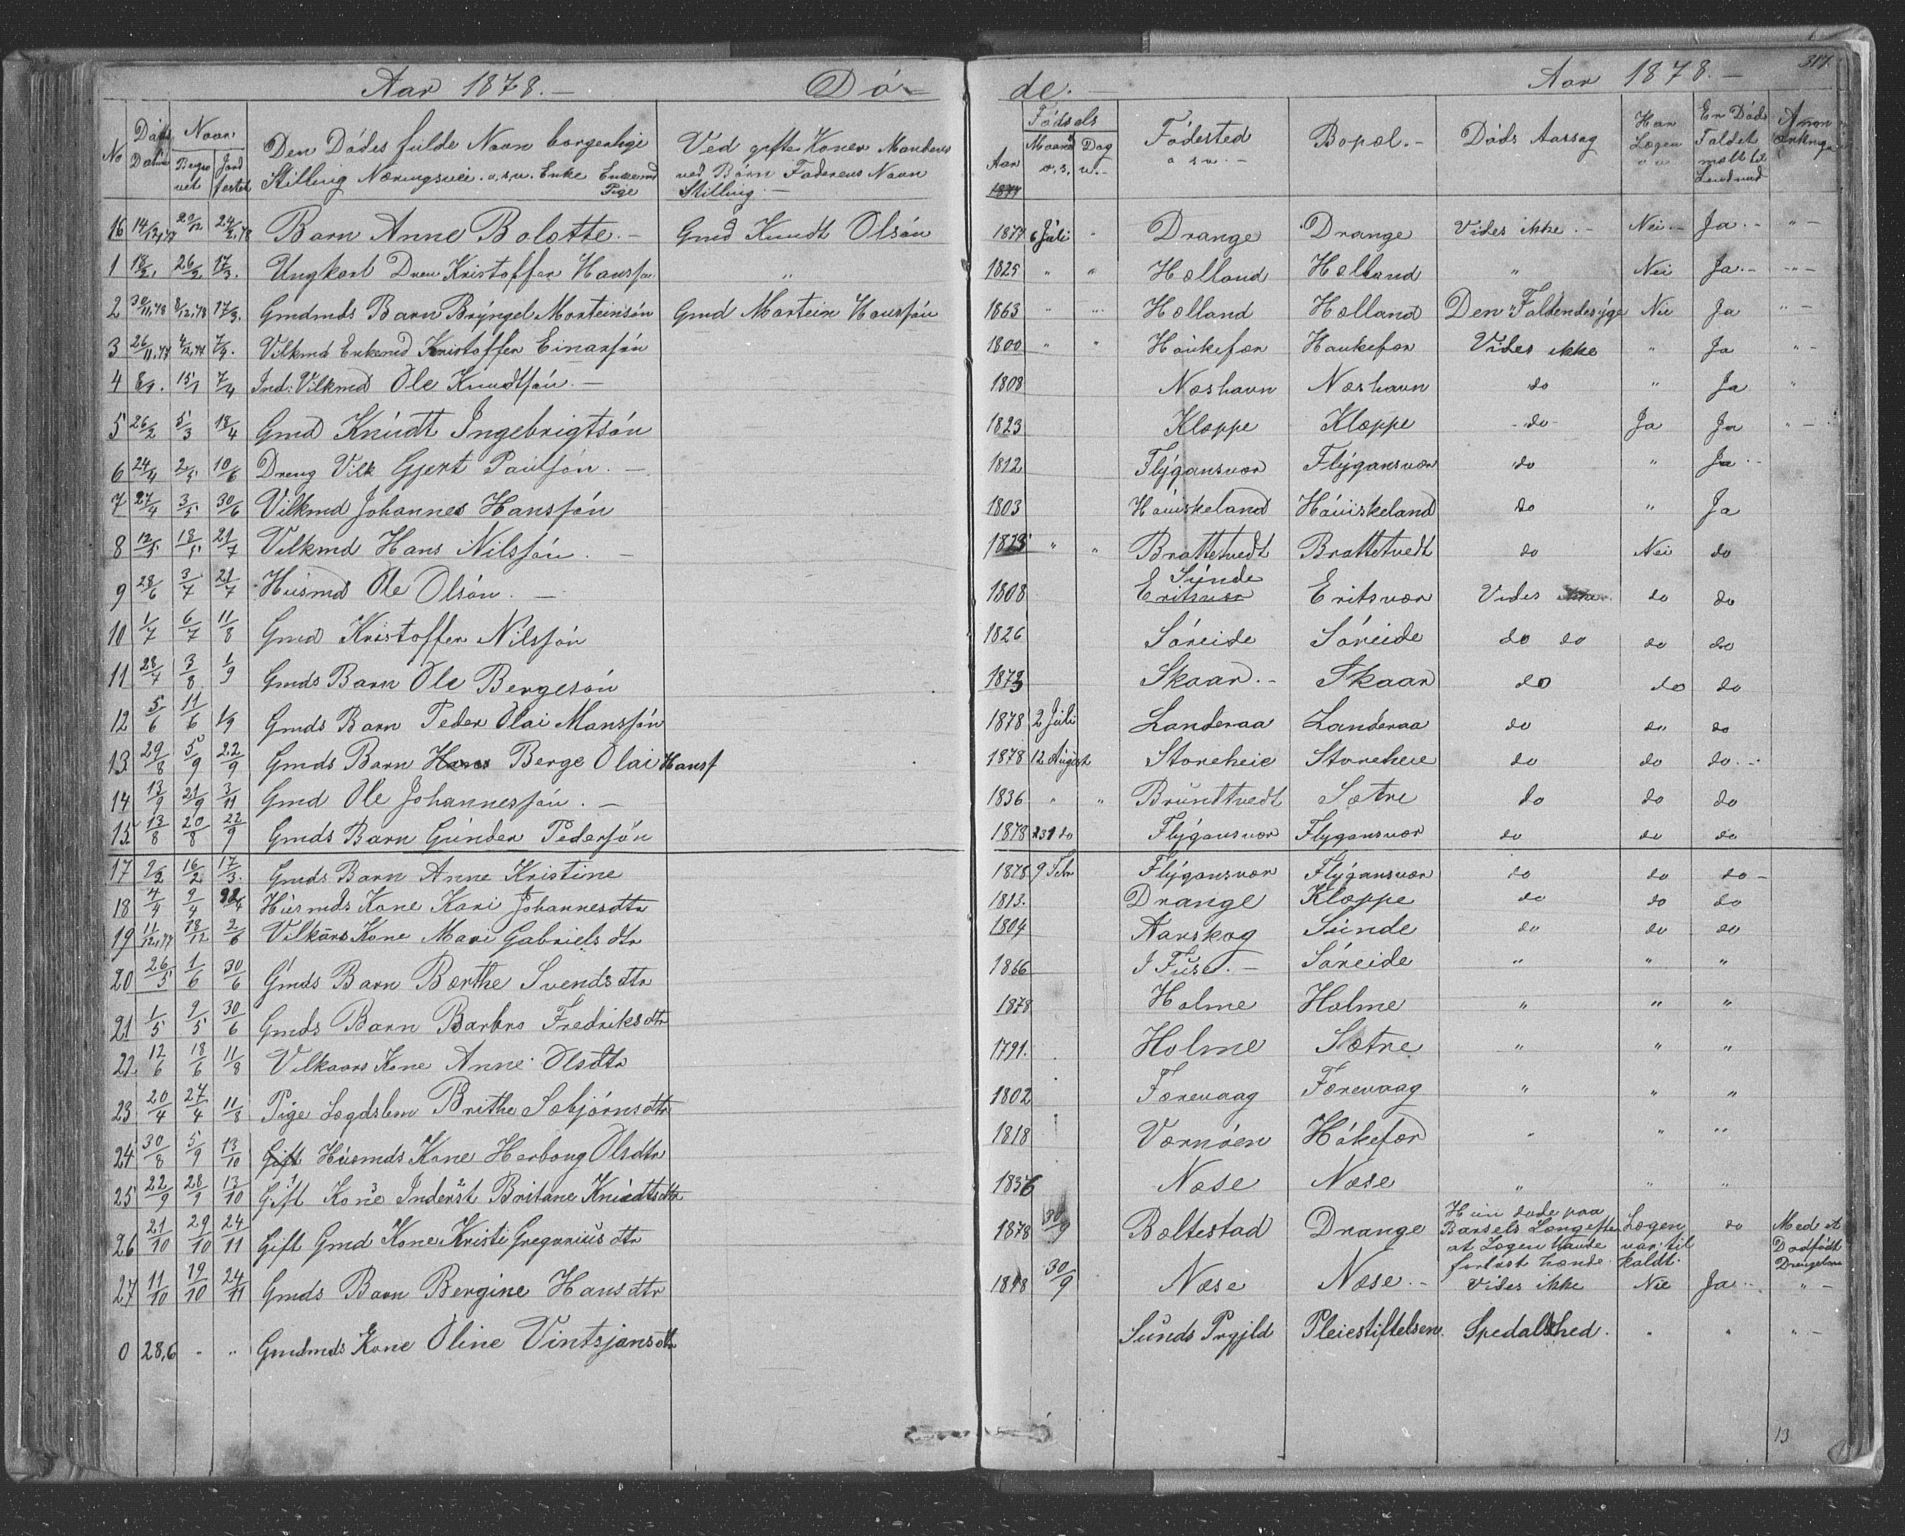 Aar 1878. — Dö- de. — Aar 1878. — 317.
No Döds Datum Naar Begravet Jordfestet Den Dödes fulde Navn borgerlige Stilling Næringsvei o.s.v. Enke Enkemd Pige Ved gifte Koner Mandens ved Börn Faderens Navn Stilling. — Födsels Aar Maaned Dag Födested o.s.v. — Bopæl. — Döds Aarsag Har Lægen En Döds Faldet
1877
16 14/12,77 20/12 24/2,78 Barn Anne Bolette. — Gmd Knudt Olsön 1877 6 Juli " Drange Drange Vides ikke. — Nei — Ja. — " —
1 18/2, 26/2 17/3. Ungkarl Dren Kristoffer Hansson " 1825 " " Hælland Hælland " Nei Ja. — " —
2 30/11,78 8/12,78 17/3. Gmdmds Barn Bryngel Morteinsön Gmd Mortein Hansson 1863 " " Hælland Hælland Den Faldendesyge Nei Ja " —
3 26/11,77 4/12,77 7/3. Vilkmd Enkemd Kristoffer Einarsön 1800 " " Haukefær Haukefær Vides ikke " Ja " —
4 8/1. 15/1 7/4 Ind: Vilkmd Ole Knudtsön. — 1808 Næshavn Næshavn do " Ja "
5 26/2 5/3 18/4 Gmd Knudt Ingebrigtsön 1823 Kloppe Kloppe - do - Ja Ja " —
6 24/4 2/5 10/6 Dreng Vilk Gjert Paulsön. — 1812 Flygansvær Flygansvær do " Ja. —
7 27/4 3/5 30/6 Vilkmd Johannes Hanssön 1803 Hauiskeland Hauiskeland do " Ja
8 12/5 18/5 21/7 Vilkmd Hans Nilssön. — 1825 " " Brattetvedt Brattetvedt do Nei do
9 28/6 3/7 21/7 Husmd Ole Olsön. — 1808 Sunde Eritsvær Eritsvær Vides ikke do do
10 1/7 6/7 11/8 Gmd Kristoffer Nilssön 1826 Söreide Söreide do do do do
11 28/7 3/8 1/9 Gmds Barn Ole Bergesön 1873 Skaar. — Skaar do do do
12 5/6 11/6 1/9 Gmds Barn Peder Olai Manssön 1878 2 Juli Landeraa Landeraa do do do
13 29/8 5/9 22/9 Gmds Barn Hans Berge Olai Hanss 1878 12 August Storeheie Storeheie do do do. —
14 13/9 21/9 3/11 Gmd Ole Johannessön. — 1836 " " Brundtvedt Sætre do do do
15 13/8 20/8 22/9 Gmds Barn Gunder Pedersön 1878 231 do Flygansvær Flygansvær do do do
17 9/2 16/2 17/3. Gmds Barn Anne Kristine 1878 9 Febr Flygansvær Flygansvær do do do —
18 4/4 9/4 Husmds Kone Kari Johannesdtr 1813. Drange Kloppe do do do
19 11/12,77 18/12 2/6 Vilkårs Kone Mari Gabrielsdtr 1804 Aarskog Sunde do do do
20 26/5 1/6 30/6 Gmds Barn Bærthe Svendsdtr 1866 I Fuse. — Söreide " " "
21 1/5 9/5 30/6 Gmds Barn Barbro Fredriksdtr 1878 Holme Holme " " "
22. 12/6 18/6 11/8 Vilkaars Kone Anne Olsdtr 1791. Holme Sætre " " "
23 20/4 27/4 11/8 Pige Lægdslem Brithe Sebjörnsdtr 1802 Færevaag Færevaag " " "
24 30/8 5/9 13/10 Gift Husmds Kone Herborg Olsdtr 1818 Værnöen Håkefær " " "
25 22/9 28/9 13/10 Gift Kone Inderst Britane Knudtsdtr 1836 Næse Næse " " "
26 21/10 29/10 24/11 Gift Gmd Kone Kristi Gregoriusdtr 1878 30/9 Bæltestad Drange Hun döde paa Barsels Længefter at Lægen havde forlöst hende. Lægen var til kaldt. do Med et Dödfödt Drengebarn
27 11/10 19/10 24/11 Gmds Barn Bergine Hansdtr 1878 30/9 Næse Næse. — Vides ikke Nei Ja. — " —
0 28,6 - " Gmdmds Kone Oline Vintsjansdtr Sunds Prgjld Pleiestiftelsen. Spedalskhed. " " " —
13